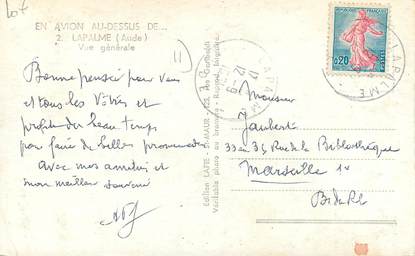 Lot
EN AVION AU-DESSUS DE...
2. LAPALME (Aude)
Vue générale
Bonne pensée pour vous
et tous les Vôtres et
profitez du beau temps
pour faire de belles promenades
avec mes amitiés et
mon meilleur souvenir
Edition LAPIE - St-MAUR
Véritable photo au bromure - Reprod. interdite
LAPALME
17 - 9
FRANÇAISE
0,20
POSTES
LAPALME
Monsieur
Jaubert
33 rue de la Bibliothèque
Marseille 1er
B. du R.